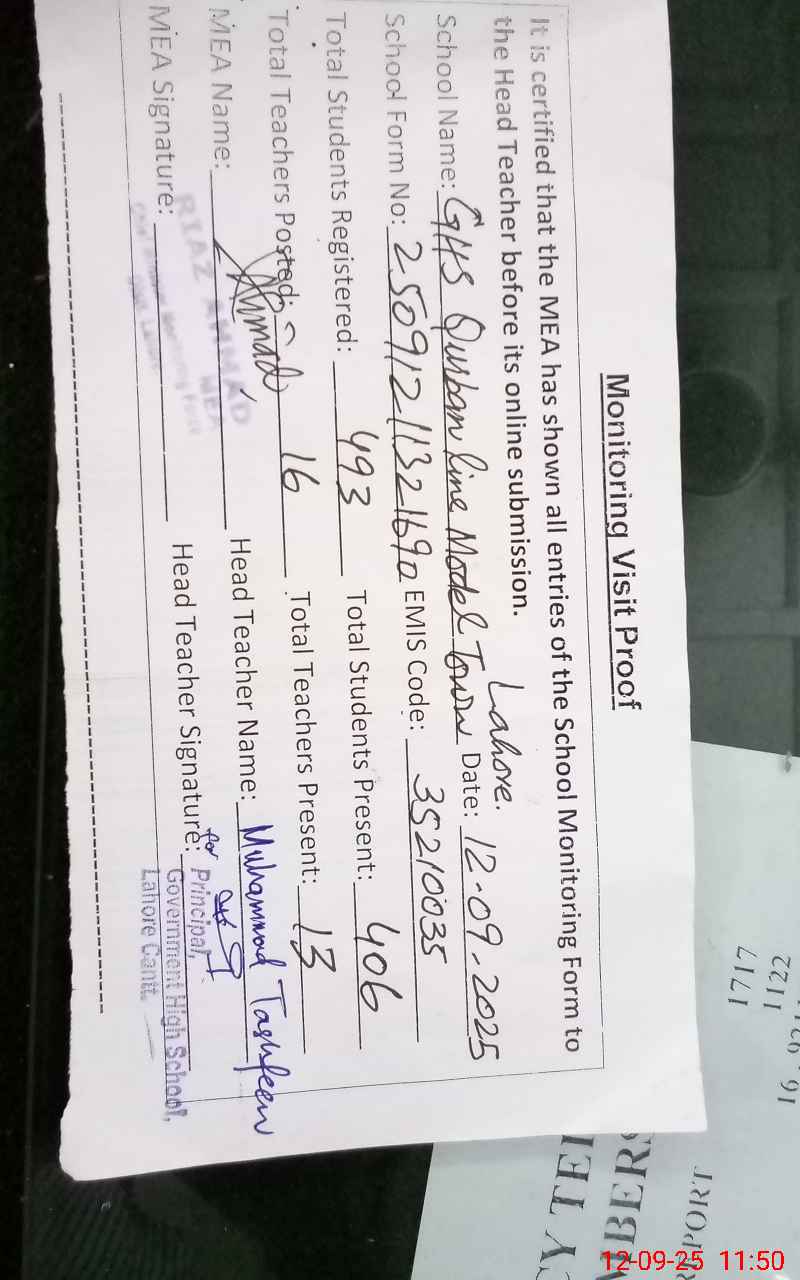 Monitoring Visit Proof
It is certified that the MEA has shown all entries of the School Monitoring Form to
the Head Teacher before its online submission.
School Name: GHS Qurban line Model Town Lahore. Date: 12-09-2025
School Form No: 2509121132169 EMIS Code: 35210035
Total Students Registered: 493 Total Students Present: 406
Total Teachers Posted: 16 Total Teachers Present: 13
MEA Name: Ahmad Head Teacher Name: Muhammad Tashfeen
RIAZ AHMAD
MEA
MEA Signature: Head Teacher Signature:
for Principal,
Government High School,
Lahore Cantt.
1122
1717
12-09-25 11:50